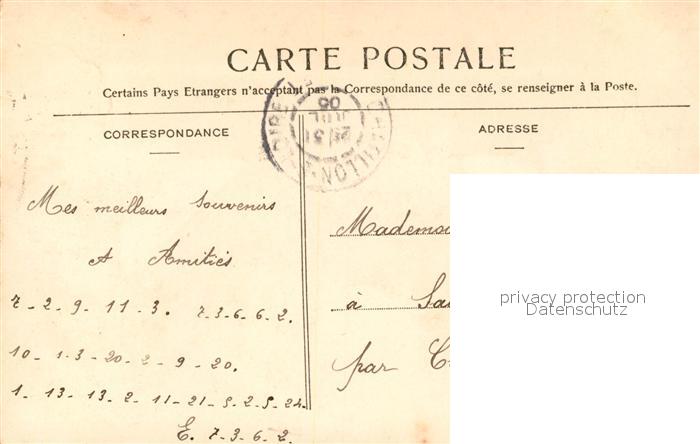 CARTE POSTALE
Certains Pays Etrangers n'acceptant pas la Correspondance de ce côté, se renseigner à la Poste.
CORRESPONDANCE
ADRESSE
31
JUIL
05
Mes meilleurs Souvenirs
A Amitiés
7-2-9-11-3. 7-3-6-6-2.
10-1-3-20-2-9-20.
1-13-13-2-11-21-5-2-5-24.
E. 7-3-6-2.
Mademoi
à Sa
par C
privacy protection
Datenschutz